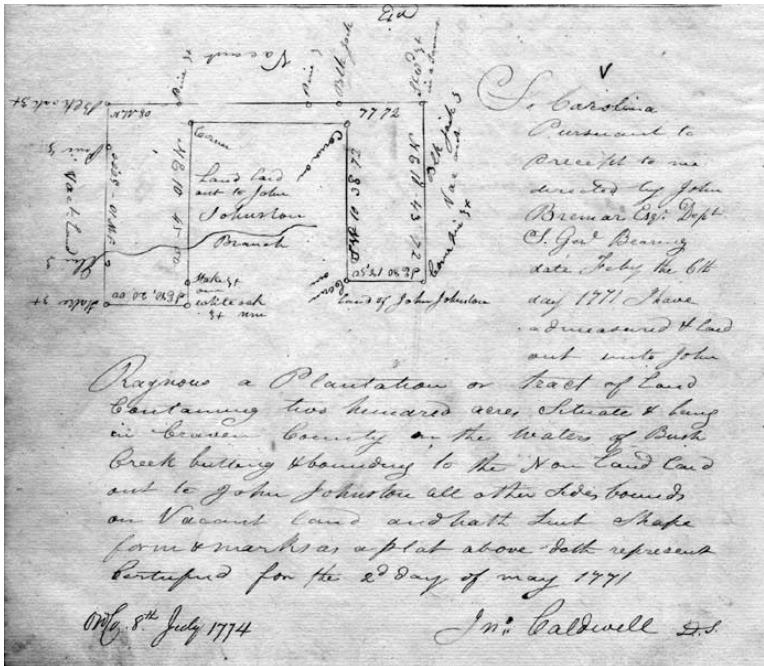 Vacant
Pine 3
Blk Jack
Pine 3x
Blk oak 3x
Pine 3
Vact Land
Pine 3
Stake 3x
Corner
Corner
Land Laid
out to John
Johnston
Branch
Stake 3x
on
white oak
3x nm
Corn
Land of John Johnston
Blk Jack 3
Vacant
Corn Pine 3x
So Carolina
Pursuant to
precept to me
directed by John
Bremar Esqr. Dept
S. Genl. Bearing
date Feby the 6th
day 1771 I have
admeasured & laid
out unto John
Ragnous a Plantation or tract of Land
Containing two hundred acres Situate & being
in Craven County on the Waters of Bush
Creek butting & bounding to the Land Laid
out to John Johnston all other Sides bounds
on Vacant land and hath Such Shape
form & marks as a plat above doth represent
Certifyed for the 2d day of may 1771
8th July 1774
Jno. Caldwell D.S.